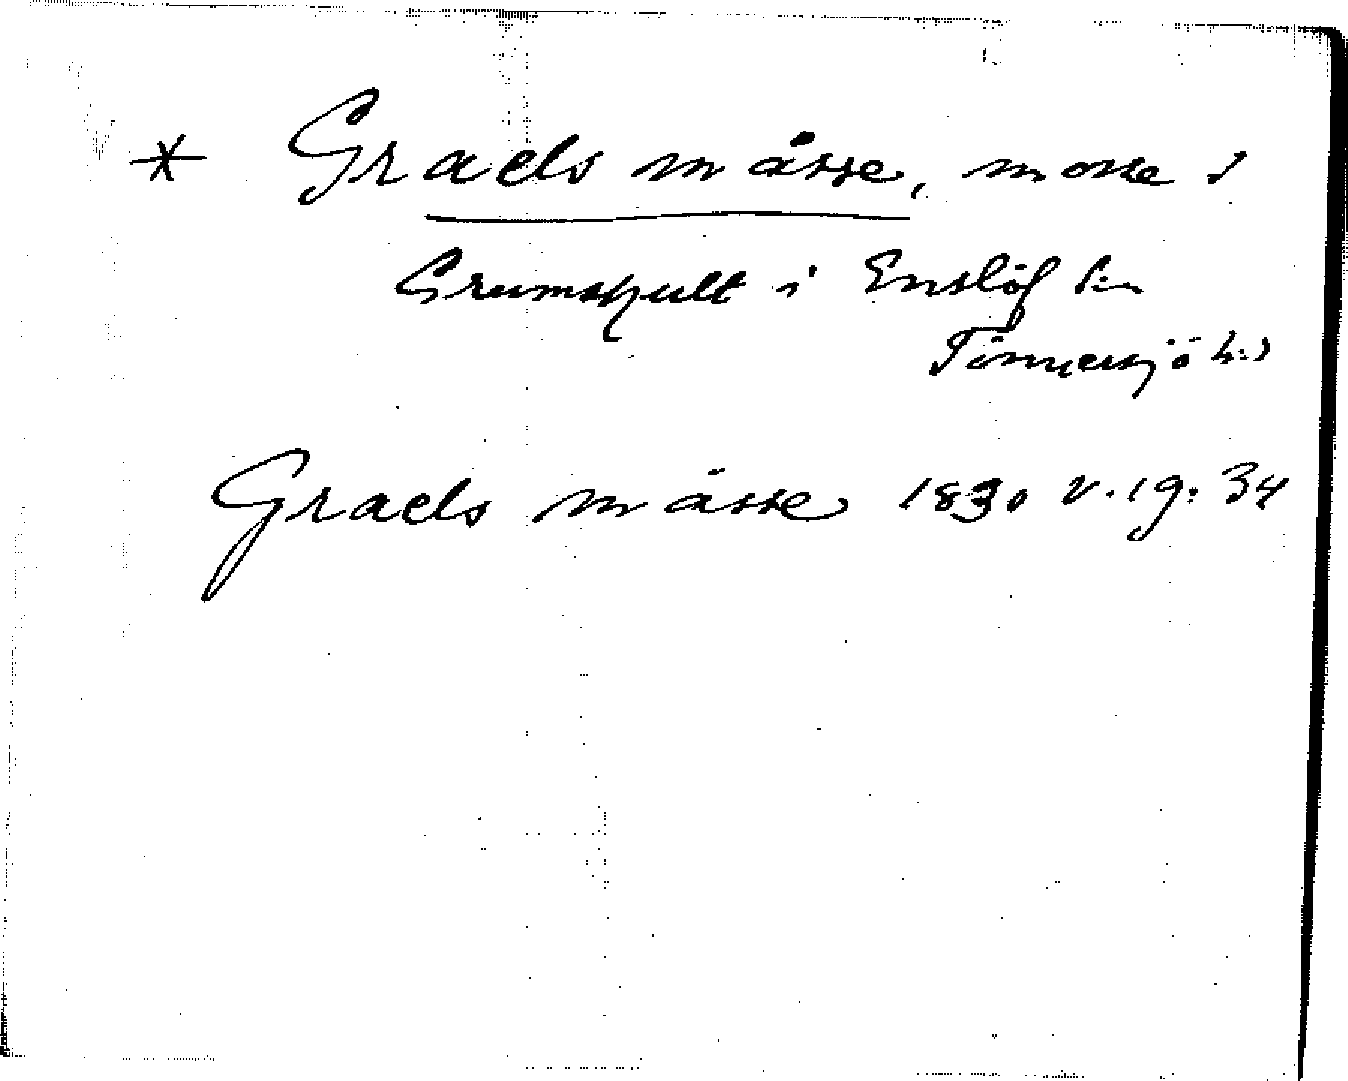 * Graels måsse, mosse i
Grumshult i Enslöf sn
Tönnersjö hd
Graels måsse 1830 v. 19: 34